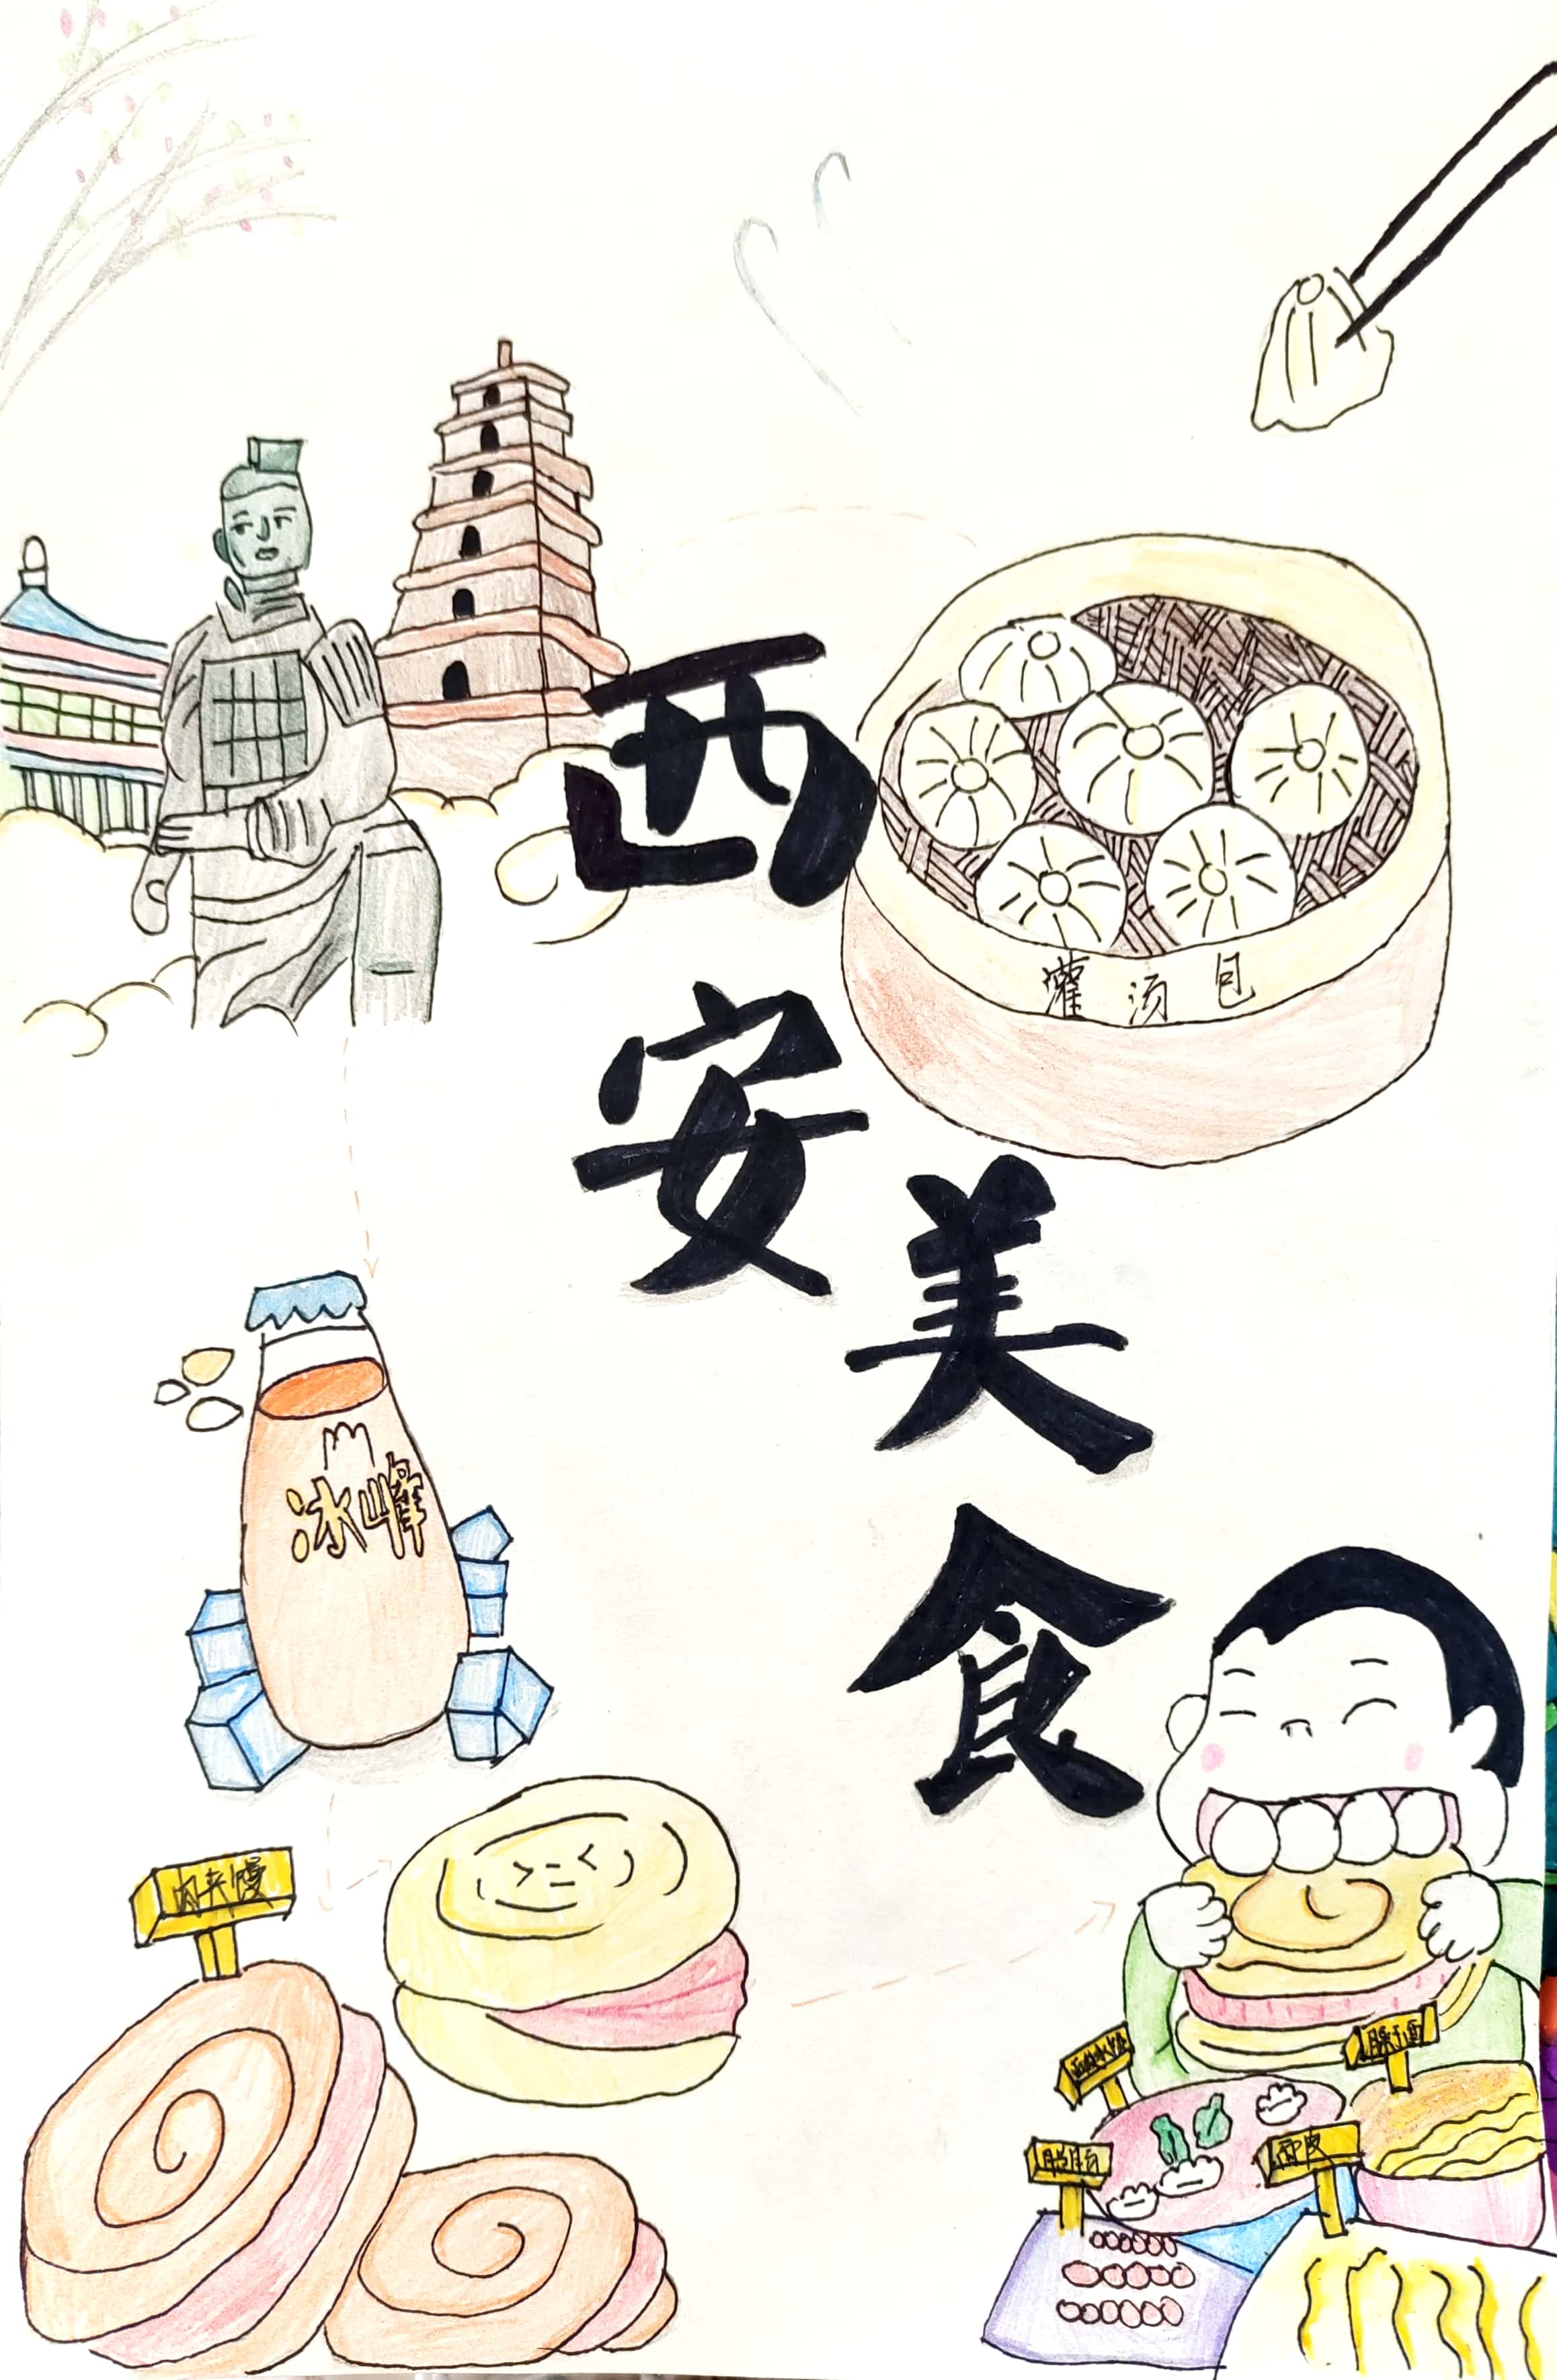 西安美食
灌汤包
冰峰
肉夹馍
臊子面